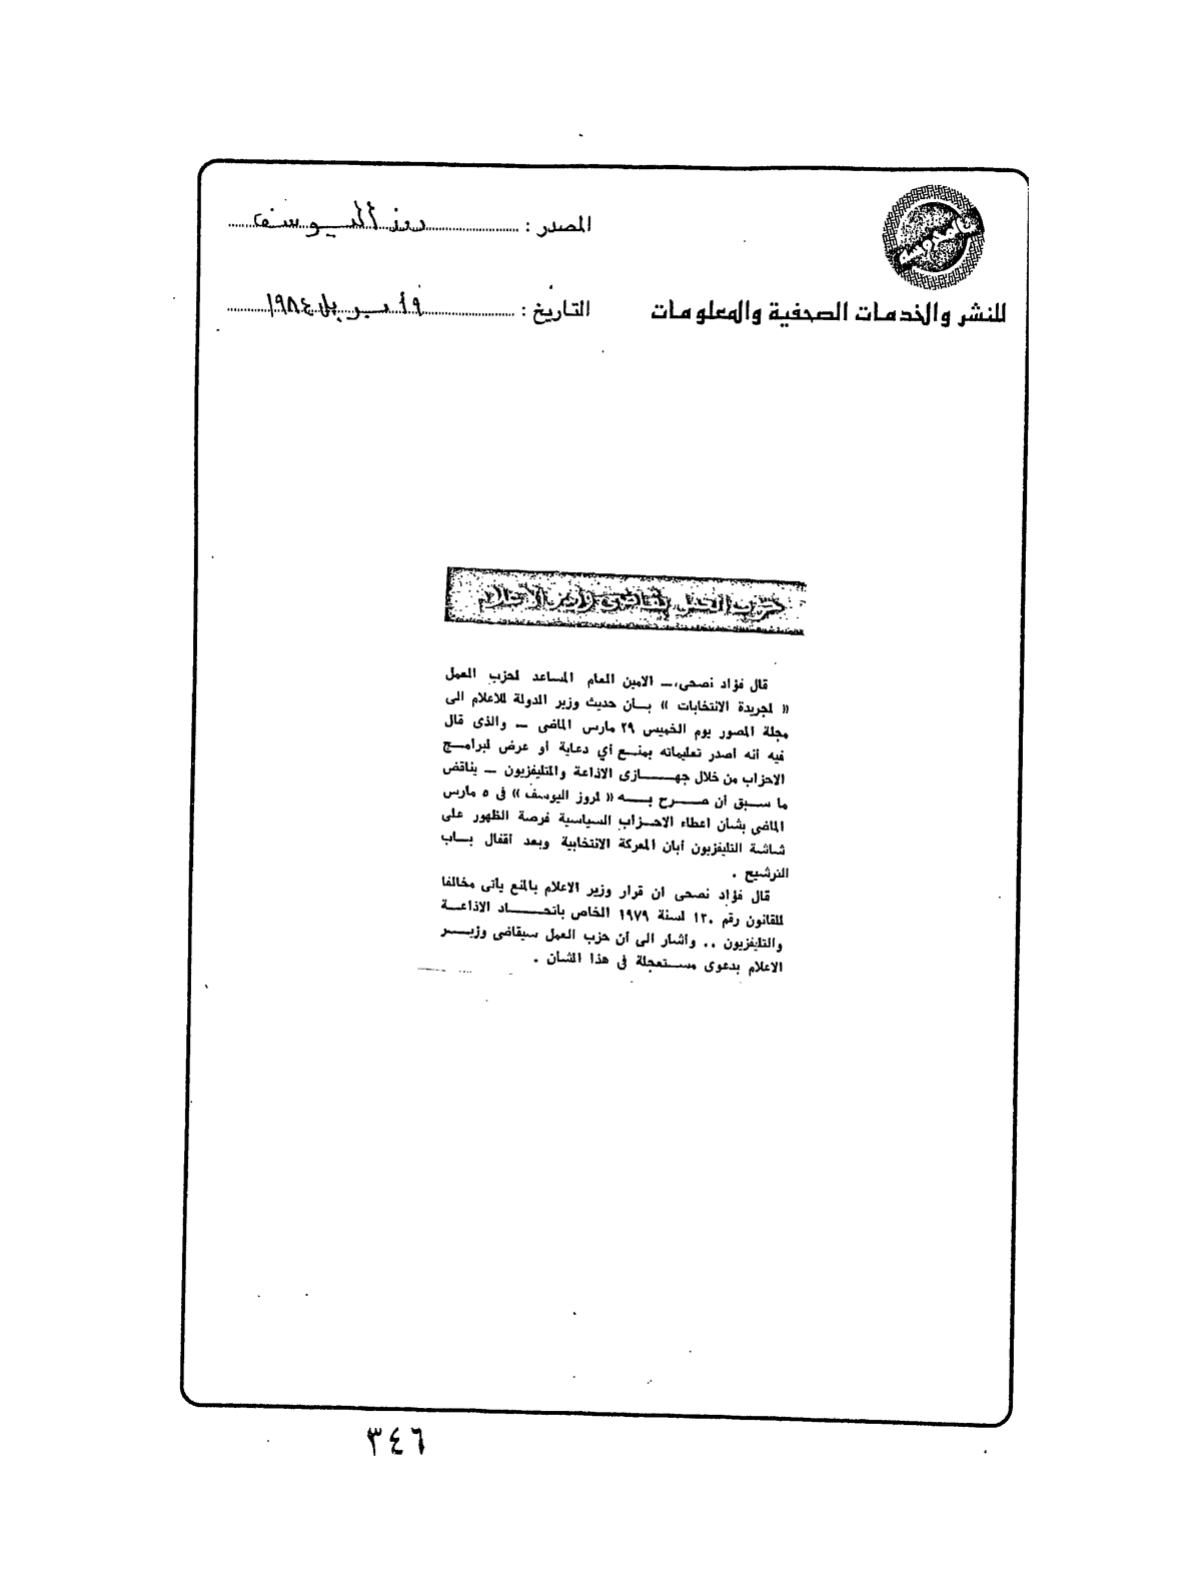 المصدر : روز اليوسف
للنشر والخدمات الصحفية والمعلومات
التاريخ : ٩ أبريل ١٩٨٤
حزب العمل يقاضى وزير الاعلام
قال فؤاد نصحى ــ الامين العام المساعد لحزب العمل
« لجريدة الانتخابات » بــان حديث وزير الدولة للاعلام الى
مجلة المصور يوم الخميس ٢٩ مارس الماضى ــ والذى قال
فيه أنه اصدر تعليماته بمنــع أي دعاية أو عرض لبرامــج
الاحزاب من خلال جهــــازى الاذاعة والتليفزيون ــ يناقض
ما ســبق أن صــرح بــه « لروز اليوسف » فى ٥ مارس
الماضى بشأن اعطاء الاحــزاب السياسية فرصة الظهور على
شاشة التليفزيون أبان المعركة الانتخابية وبعد أقفال بــاب
الترشيح .
قال فؤاد نصحى ان قرار وزير الاعلام بالمنع يأتى مخالفا
للقانون رقم ١٣٠ لسنة ١٩٧٩ الخاص باتحــــاد الاذاعــة
والتليفزيون .. وأشار الى أن حزب العمل سيقاضى وزيــــر
الاعلام بدعوى مســتعجلة فى هذا الشان .
٣٤٦